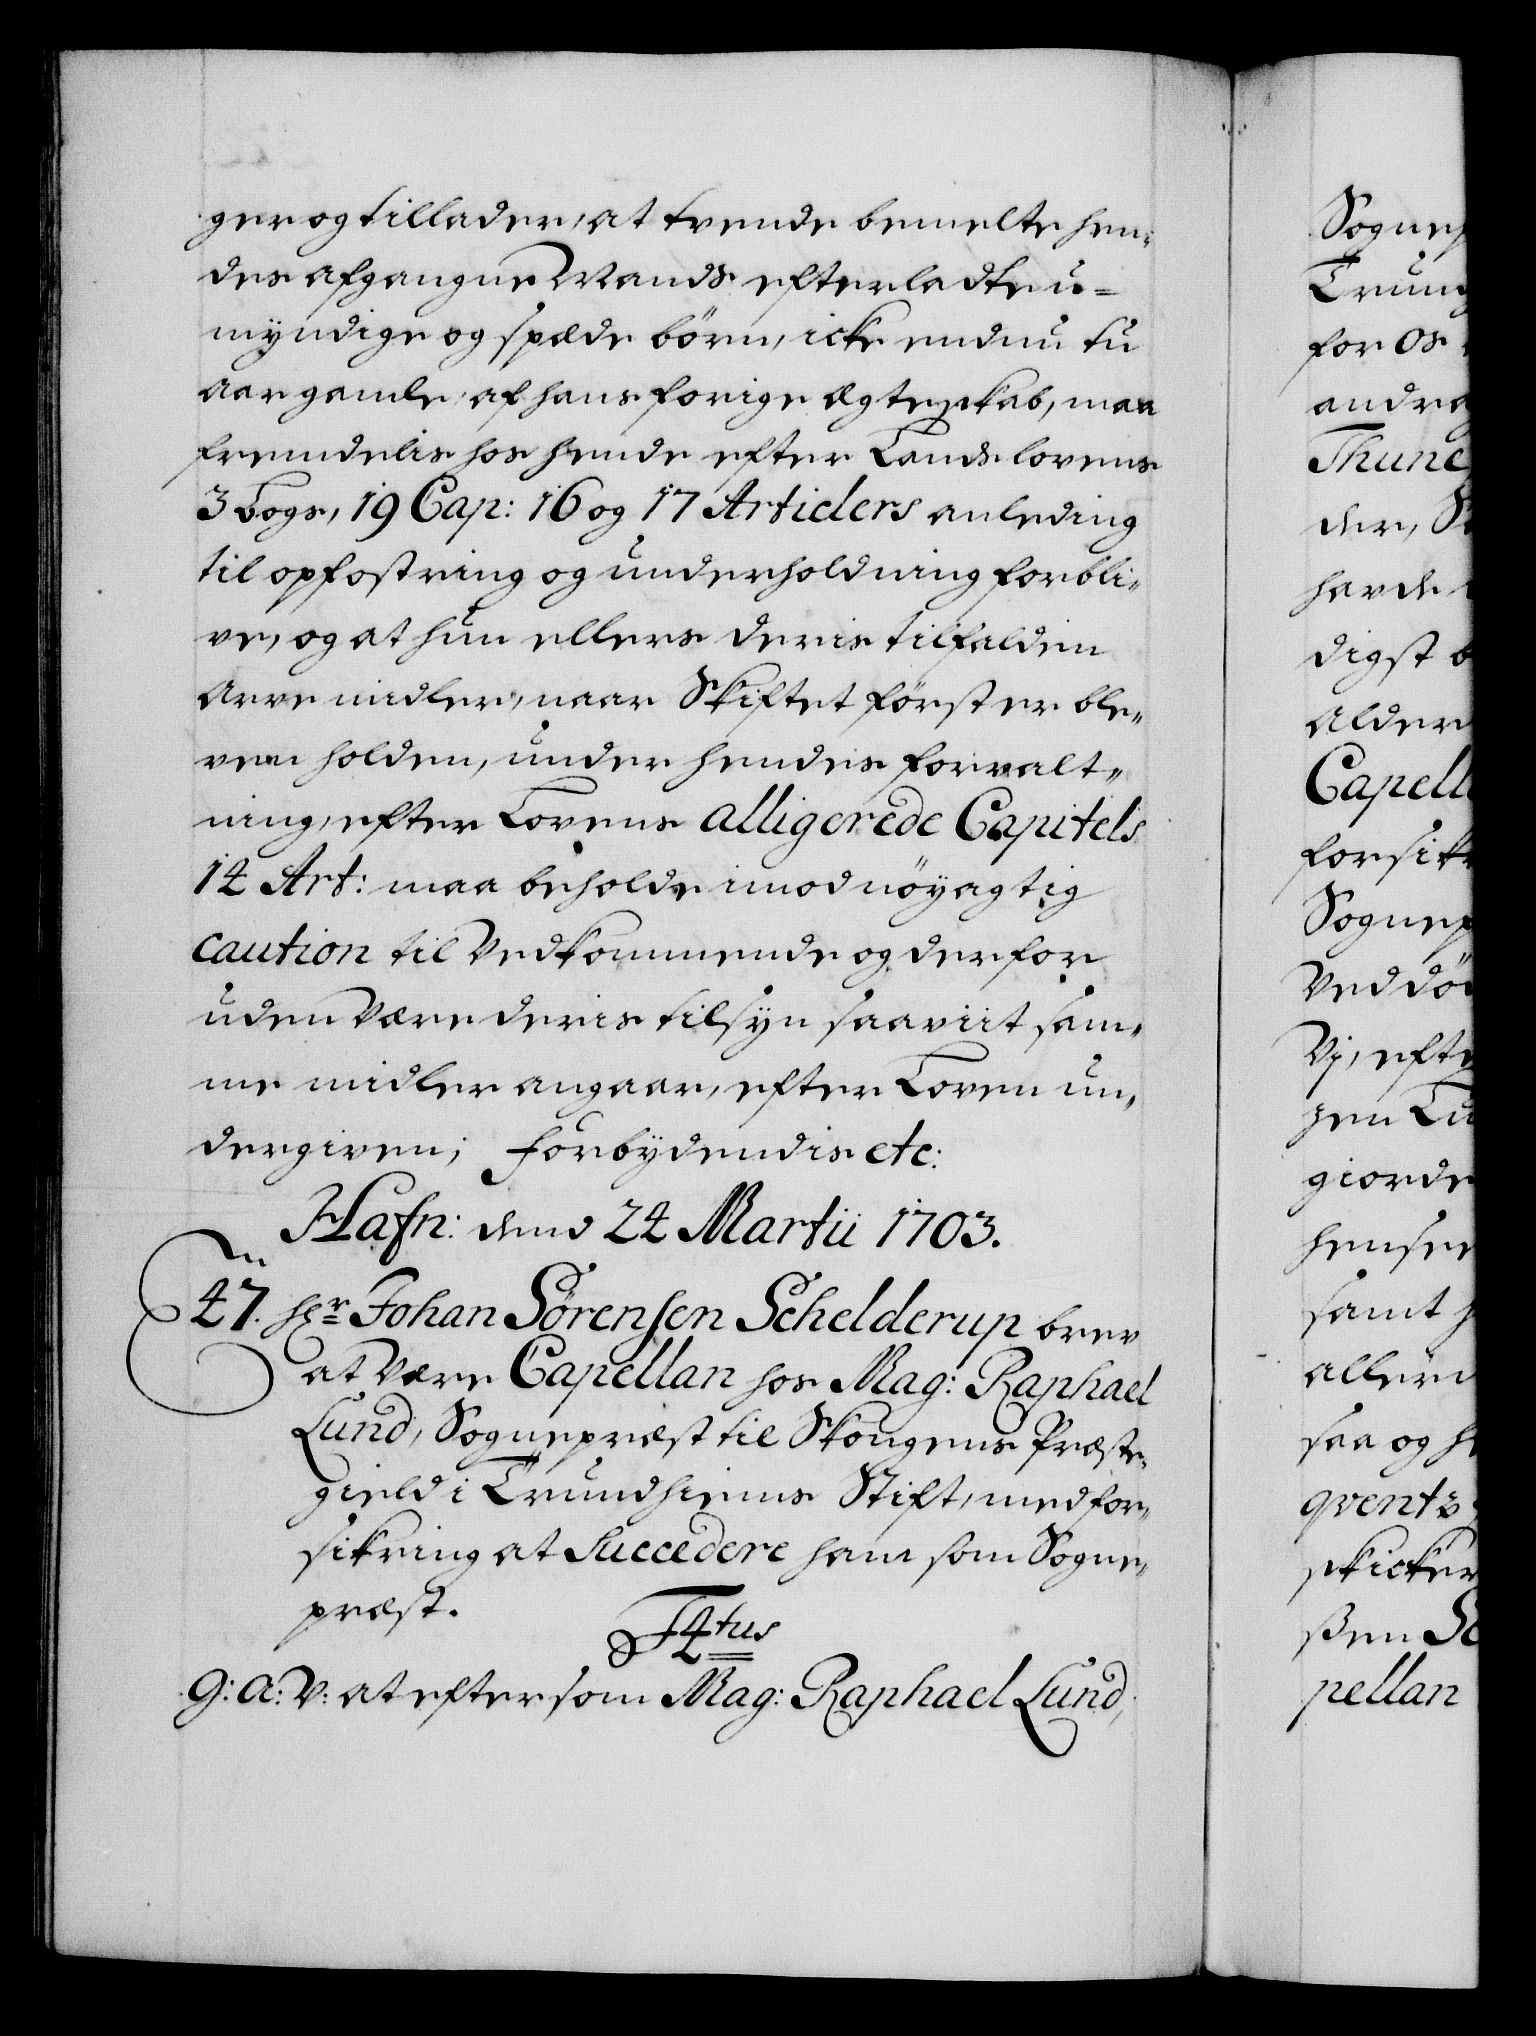 ger og tillader, at tvende bemelte hen-
des afgangne Mands efterladte u-
myndige og spæde børn, icke endnu tu
Aar gamle, af hans forige Ægteskab, maa
fremdelis hos hende efter Landslovens
3 bogs, 19 Cap: 16 og 17 Articlers anleding
til opfostring og underholdning forbli-
ve, og at hun ellers deris tilfalden
Arve midler, naar Skiftet først er ble-
ven holden, under hendis forvalt-
ning, efter Lovens alligerede Capitels
14 Art: maa beholde imod nöyagtig
caution til Vedkommende og derfor
uden Være deris tilsyn saaviit sam-
me midler angaar, efter Loven un-
dergiven; forbydendis etc:
Hafn: dend 24 Martii 1703.
47. Hr Johan Sörensen Schelderup brev
at Være Capellan hos Mag: Raphael
Lund, Sognepræst til Skongens Præste-
gield i Trundhiems Stift, med for-
sikring at Succedere ham som Sogne-
præst.
F 4tus
G: A: V: at eftersom Mag: Raphael Lund,
Sognep
Trund
for os
andra
Thund
der, S
hav de
digst b
Alder
Capell
forsik
Sognep
Ved dö
Vj, efte
gen
giorde
hensee
samt
aller
saa og h
qventz
skicker
ßen Sc
pellan